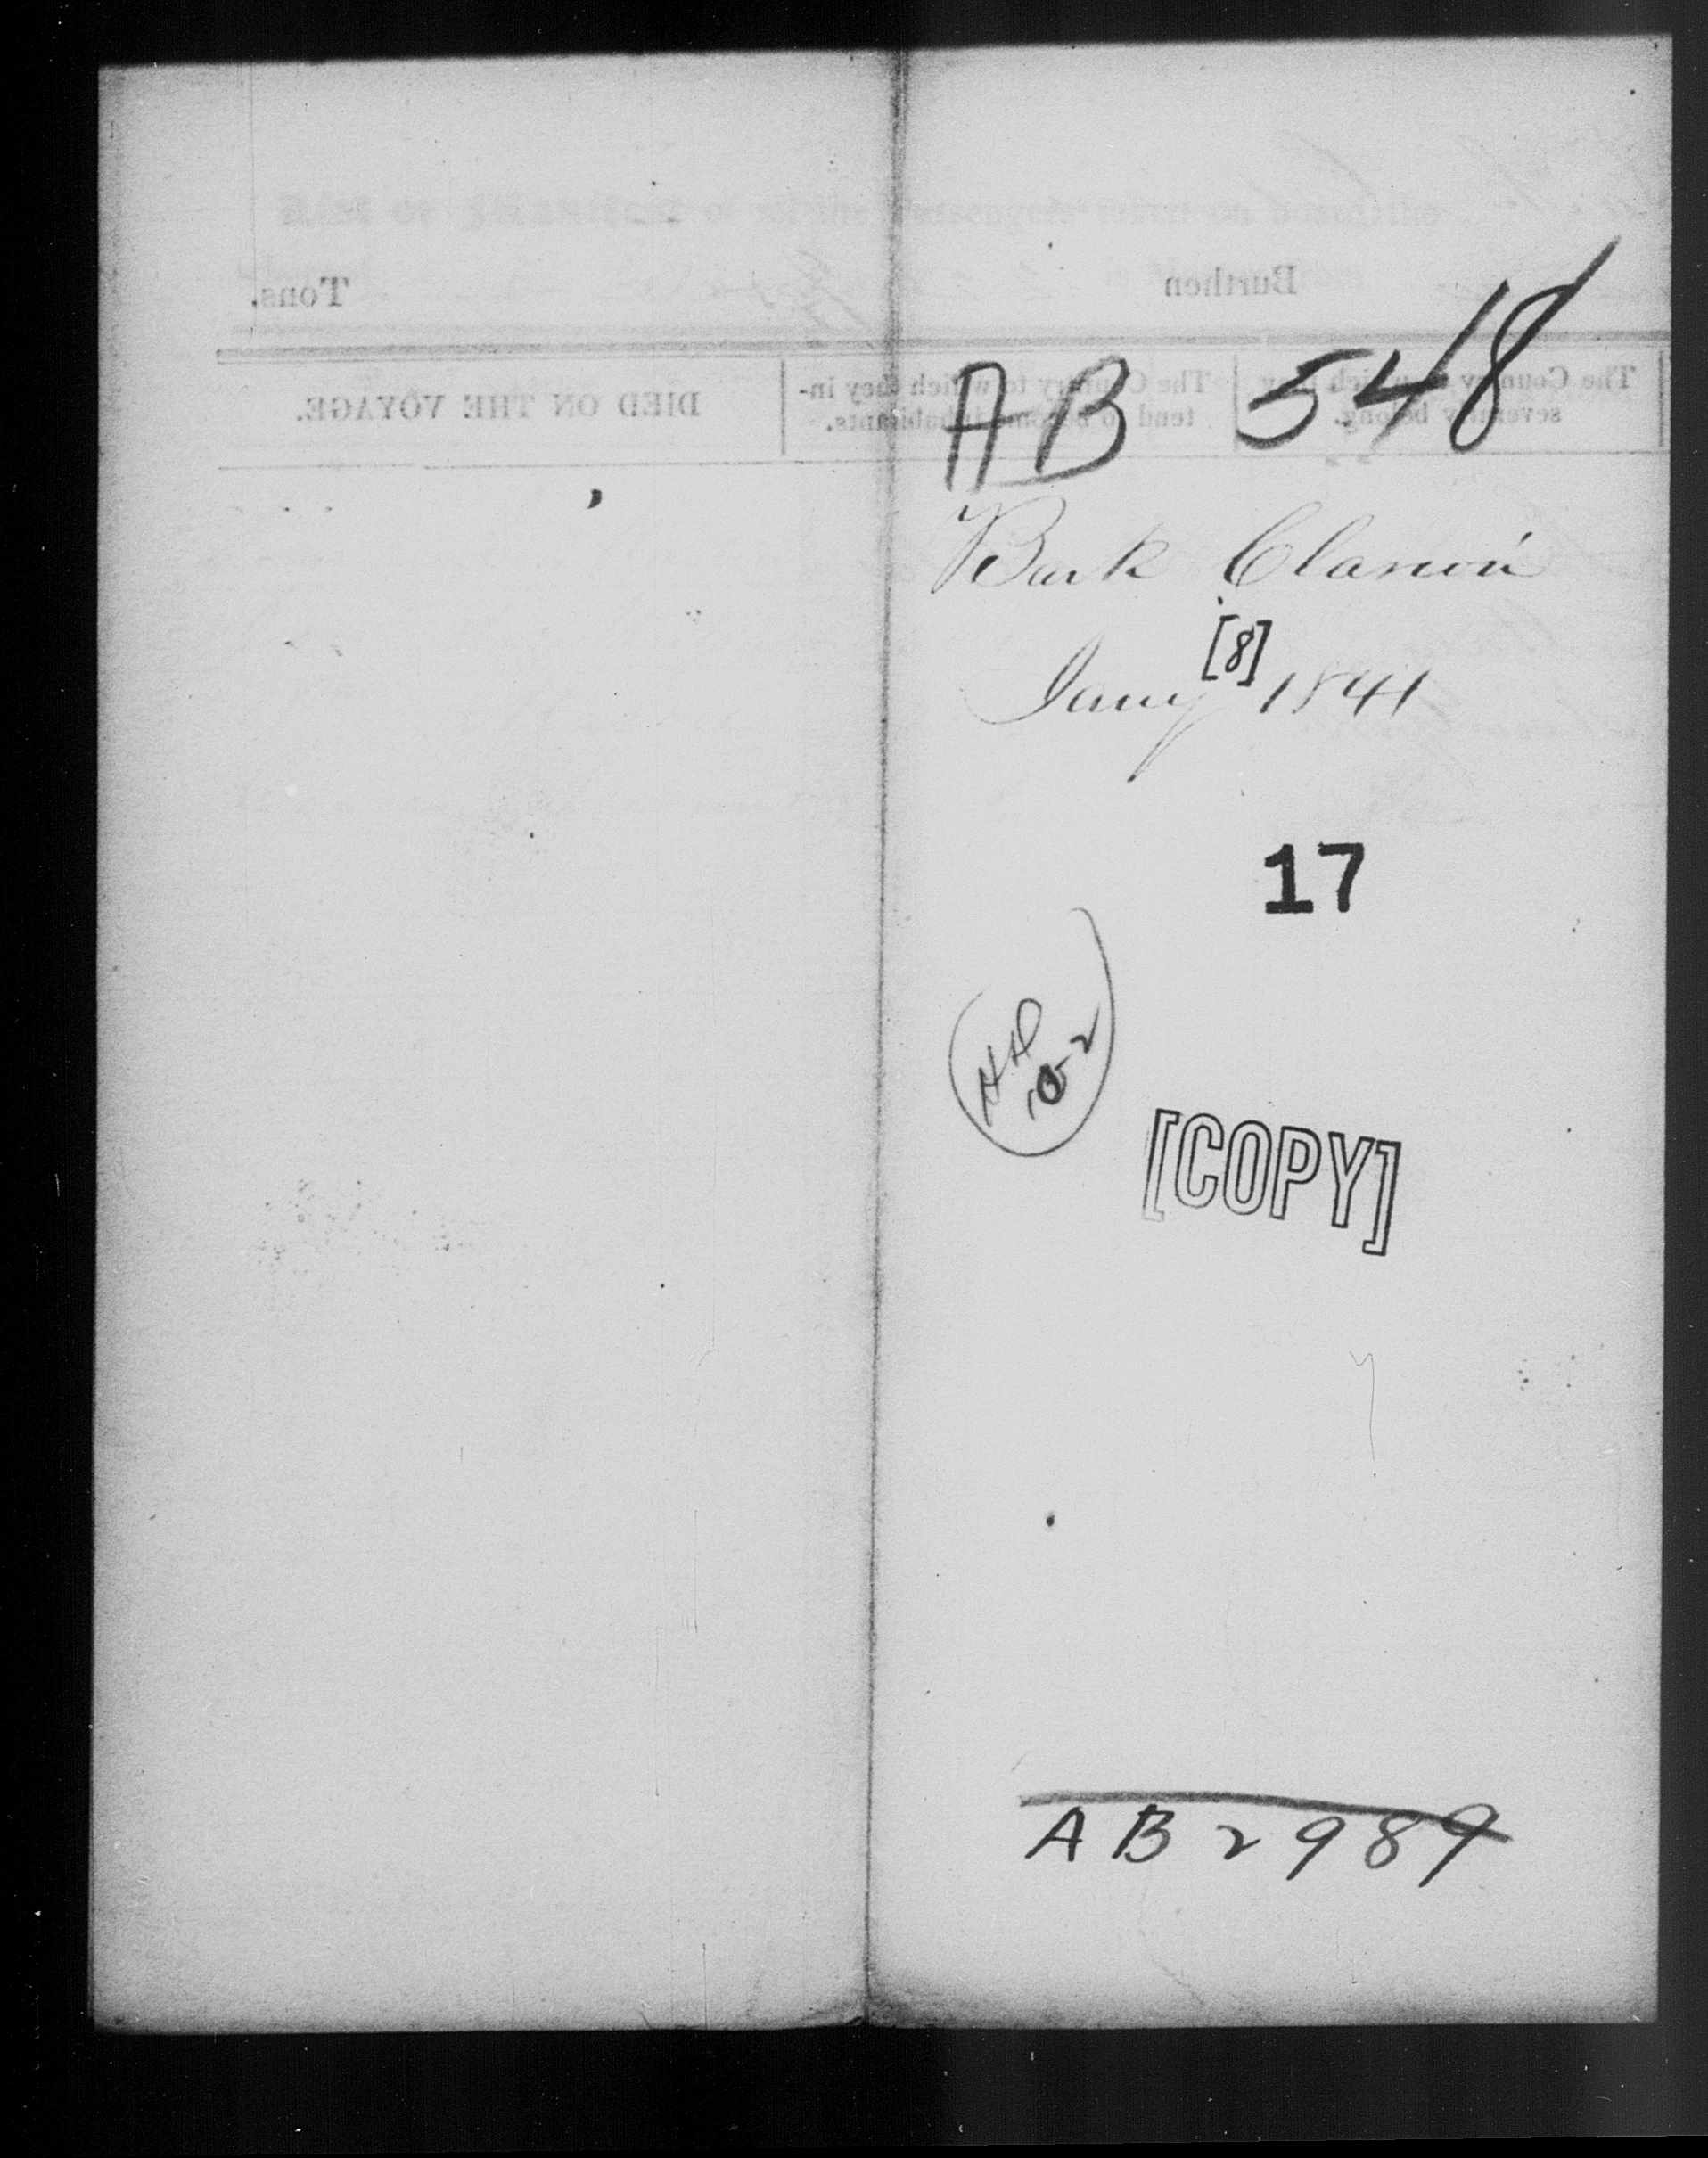 Burthen Tons.
The Country to which they severally belong. The Country to which they in-tend to become inhabitants. DIED ON THE VOYAGE.
AB 548
Bark Clarion
[8]
Jany 1841
17
HD
10-2
[COPY]
AB 2989